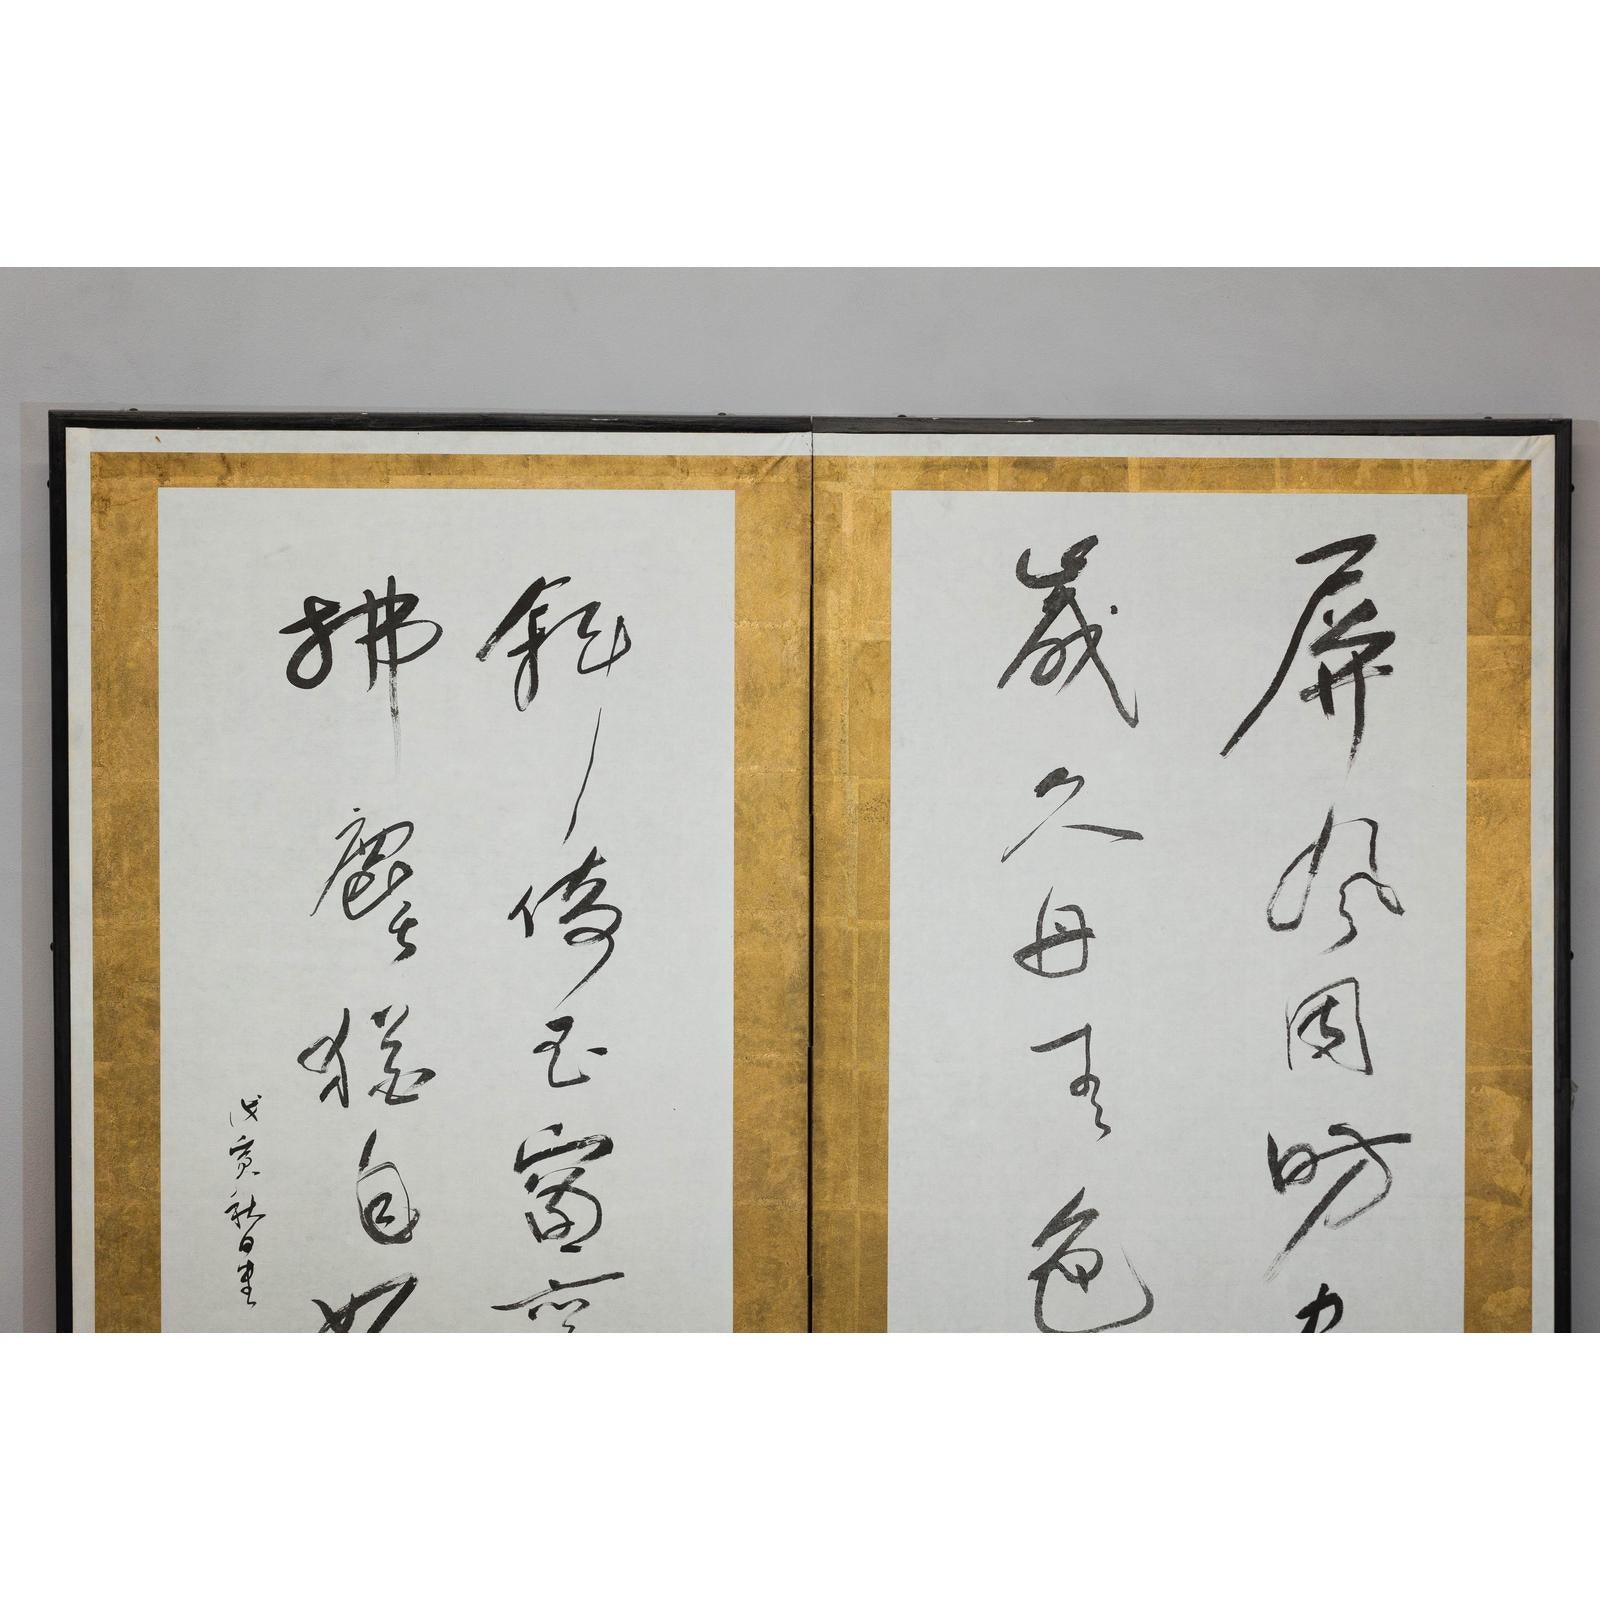 屏風周昉
歲久丹青色
斜倚玉窗
拂塵猶自
戊寅秋日書